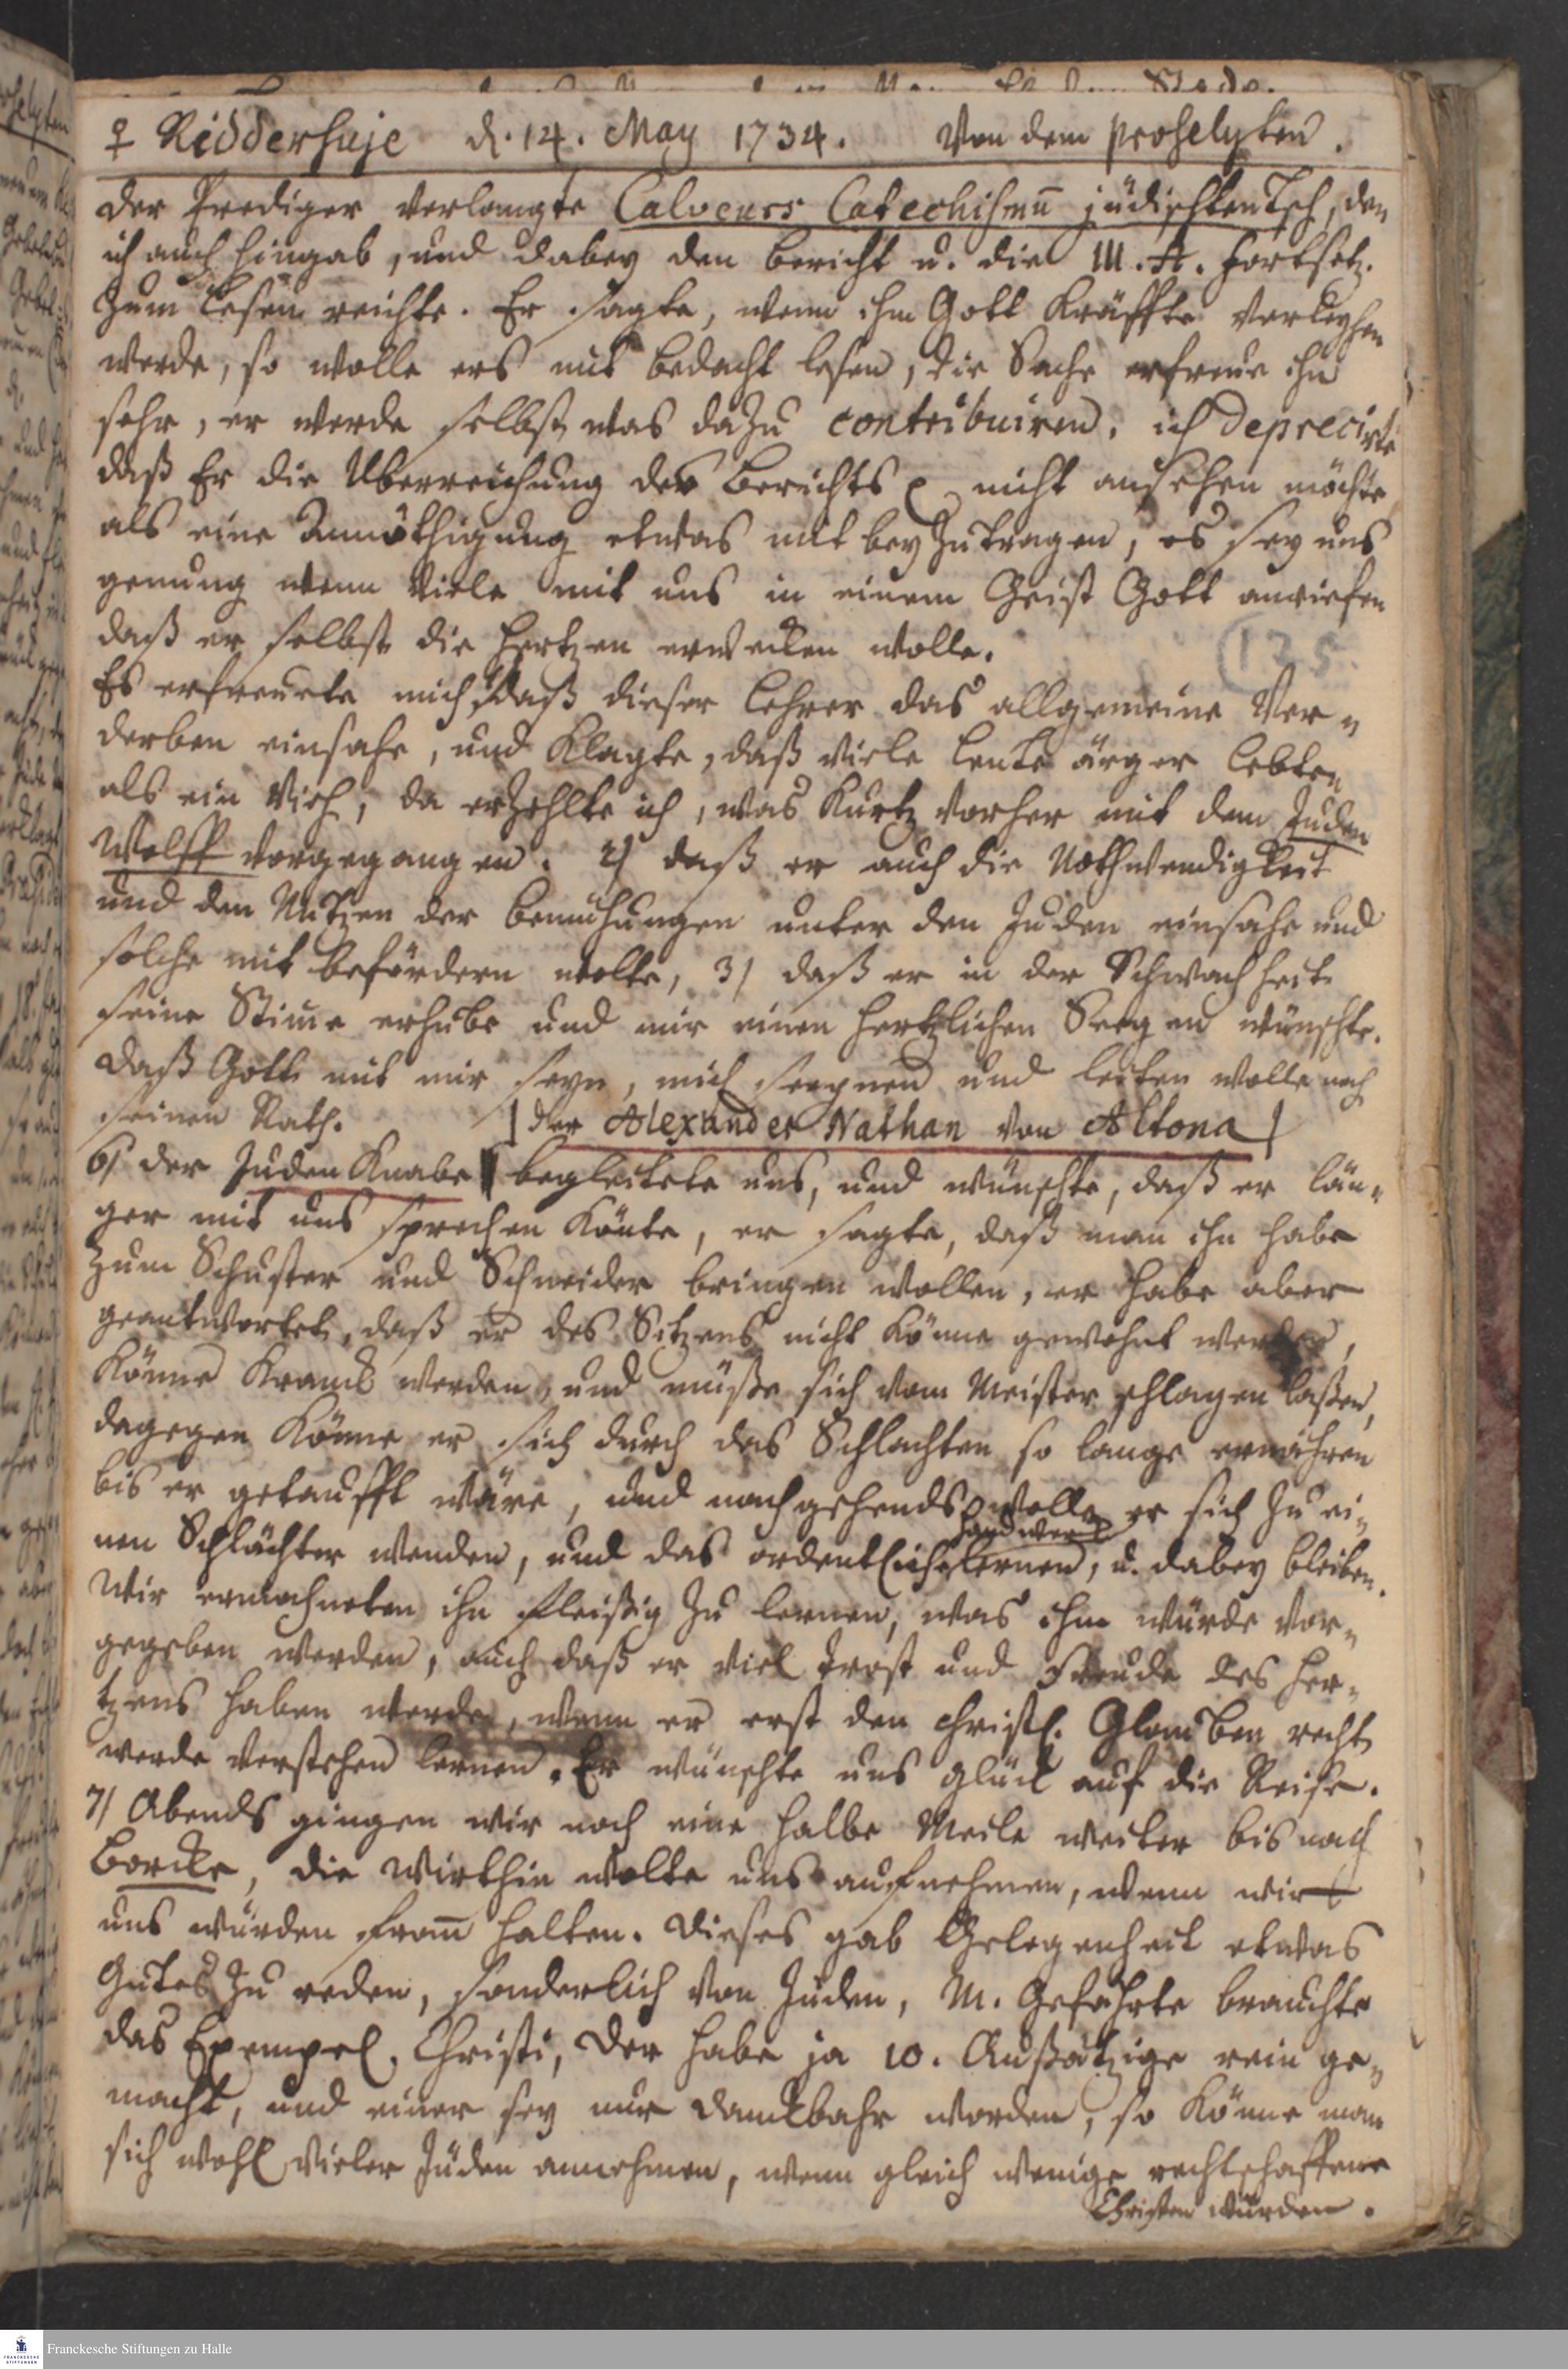 ♀ Ridderhuje d. 14. May 1734. Von dem proselyten.
Der Prediger verlangte Calvoers Catechismū jüdischteutsch, den
ich auch hingab, und dabey den Bericht u. die III. A. Fortsetz.
zum Lesen reichte. Er sagte, wenn ihm Gott Kräffte verleyhen
werde, so wolle ers mit Bedacht lesen, die Sache erfreue ihn
sehr, er werde selbst was dazu contribuiren. ich deprecirte
daß Er die Uberreichung des Berichts nicht ansehen möchte
als eine Annöthigung etwas mit bey zutragen, es sey uns
genung wenn viele mit uns in einem Geist Gott anriefen
daß er selbst die Hertzen erwecken wolle.
(125.
Es erfreuete mich, daß dieser Lehrer das allgemeine Ver-
derben einsahe, und klagte, daß viele Leute ärger lebten
als ein Vieh, da erzehlte ich, was kurtz vorher mit dem Juden
Wolff vorgegangen. 2) daß er auch die Nothwendigkeit
und den Nutzen der Bemühungen unter den Juden einsahe und
solche mit befördern wolte, 3) daß er in der Schwachheit
seine Stim̄e erhube und mir einen hertzlichen Seegen wünschte.
daß Gott mit mir seyn, mich seegnen und leiten wolle nach
seinen Rath.
(der Alexander Nathan von Altona)
6) der Juden Knabe begleitete uns, und wünschte, daß er län-
ger mit uns sprechen könte, er sagte, daß man ihn habe
zum Schuster und Schneider bringen wollen, er habe aber
geantwortet, daß er des Sitzens nicht könne gewohnt werden,
könne kranck werden, und müße sich vom Meister schlagen laßen,
dagegen könne er sich durch das Schlachten so lange ernähren
bis er getaufft wäre, und nachgehends wolle er sich zu ei-
Handwerck
nen Schlächter wenden, und das ordentliche lernen, u. dabey bleiben.
Wir ermahneten ihn fleißig zu lernen, was ihm würde vor-
gegeben werden, auch daß er viel Trost und Freude des Her-
tzens haben werde, wenn er erst den christl. Glauben recht
werde verstehen lernen. Er wünschte uns Glück auf die Reise.
7) Abends gingen wir noch eine halbe Meile weiter bis nach
Borcke, die Wirthin wolte uns aufnehmen, wenn wir
uns würden from̄ halten. Dieses gab Gelegenheit etwas
Gutes zu reden, sonderlich von Juden, M. Gefährte brauchte
das Exempel Christi, der habe ja 10. Außätzige rein ge-
macht, und einer sey nur danckbahr worden, so könne man
sich wohl vieler Juden annehmen, wenn gleich wenige rechtschaffene
Christen würden.
Franckesche Stiftungen zu Halle